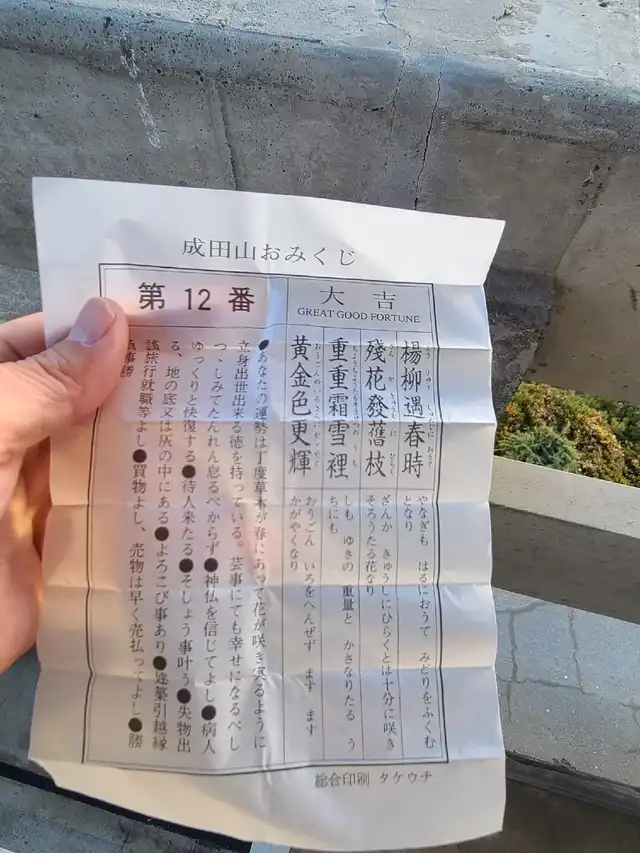 成田山おみくじ
第 12 番
大吉
GREAT GOOD FORTUNE
楊柳遇春時
やなぎも はるにおうて みどりをふくむ
となり
殘花發舊枝
ざんか きゅうしにひらくとは十分に咲き
そろうたる花なり
重重霜雪裡
しも ゆきの 重量と かさなりたる う
ちにも
黃金色更輝
おうごん いろをへんぜず ます ます
かがやくなり
●あなたの運勢は丁度草木が春にあって花が咲き実るように
立身出世出来る徳を持っている。芸事にても幸せになるべし
つゝしみてたんれん怠るべからず●神仏を信じてよし●病人
ゆっくりと快復する●待人来たる●そしょう事叶う●失物出
る、地の底又は灰の中にある●よろこび事あり●建築引越縁
談旅行就職等よし●買物よし、売物は早く売払ってよし●勝
事勝
総合印刷 タケウチ